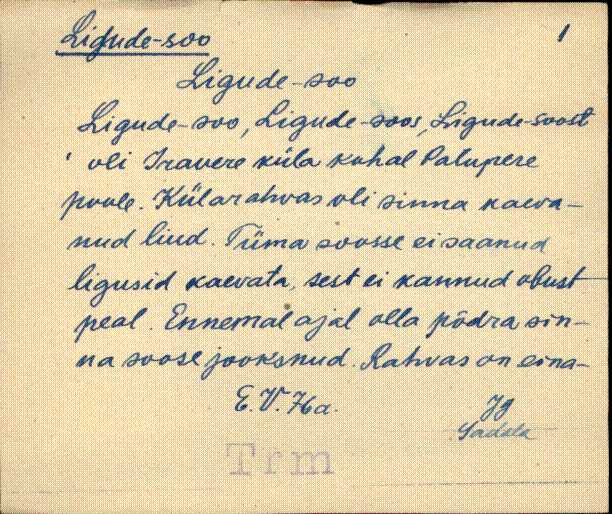 Ligude-soo 1
Ligude-soo
Ligude-soo, Ligude-soos, Ligude-soost
' oli Iravere küla kohal Patupere
poole. Külarahvas oli sinna kaeva-
nud liud. Tüma soosse ei saanud
ligusid kaevata, sest ei kannud obust
peal. Ennemal ajal olla põdra sin-
na soose jooksnud. Rahvas on eina-
E. V. Ha. Jg
Sadala
Trm